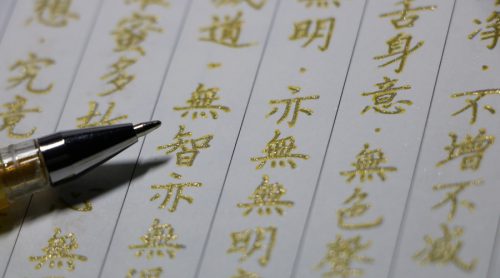 淨・不增不減
舌身意・無色聲
無明・亦無無明
道・無智亦無
蜜多故
無
想・究竟